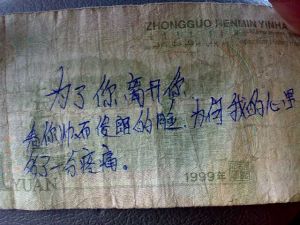 ZHONGGUO RENMIN YINHA
为了你离开你
看你帅而俊朗的脸,为何我的心里
多了一分疼痛。
YUAN
1999年